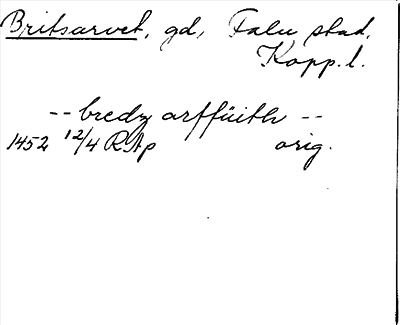 Britsarvet, gd, Falu stad,
Kopp. l.
-- bredz arffüith --
1452 12/4 RAp orig.